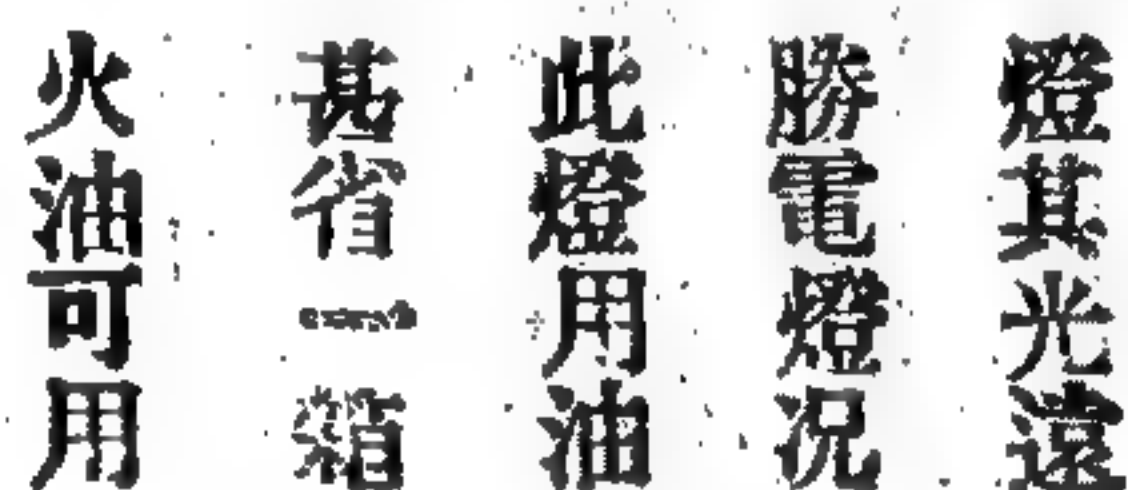 燈其光遠
勝電燈况
此燈用油
甚省一箱
火油可用